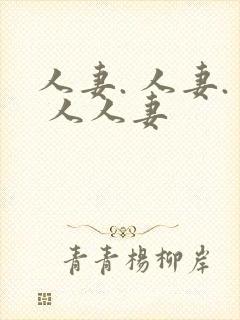 人妻.人妻.
人人妻
青青楊柳岸